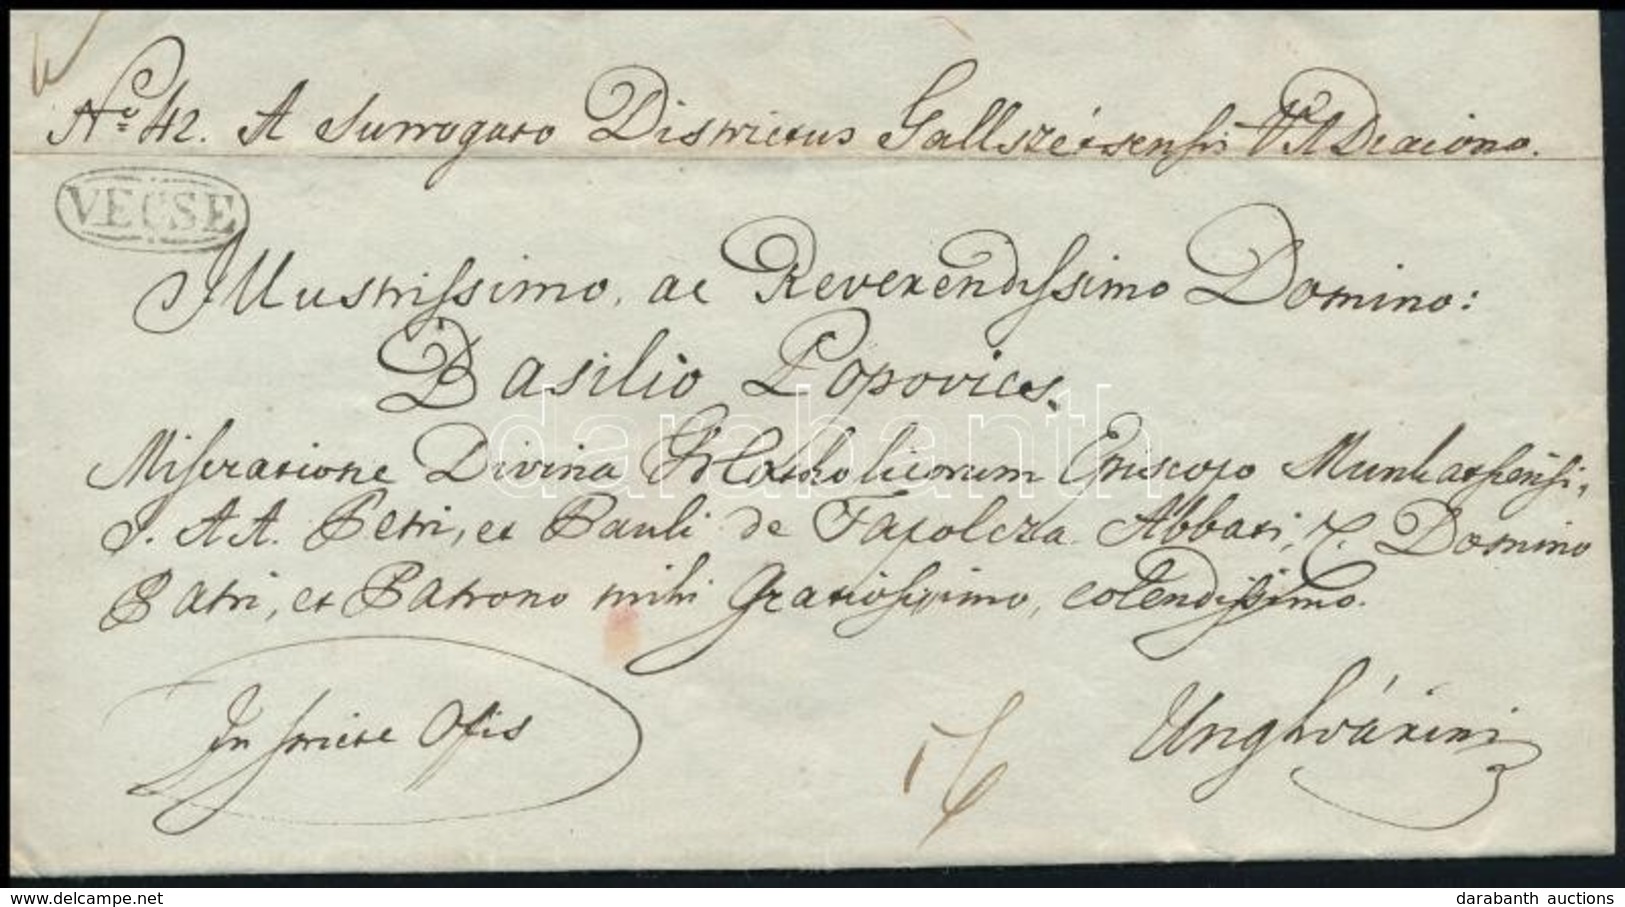 No. 42. A Surrogato Districtus Gallszécsensis V. A Diacono.
VECSE
Illustrissimo, ac Reverendissimo Domino:
Basilio Popovics.
Miseratione Divina Catholicorum Episcopo Munkatsiensi,
S. A A. Petri, et Pauli de Tapolcza Abbati, Domino
Patri, et Patrono mihi Gratiosissimo, colendissimo.
In stricte Ofis
Unghvárini
darabanth
darabanth auctions